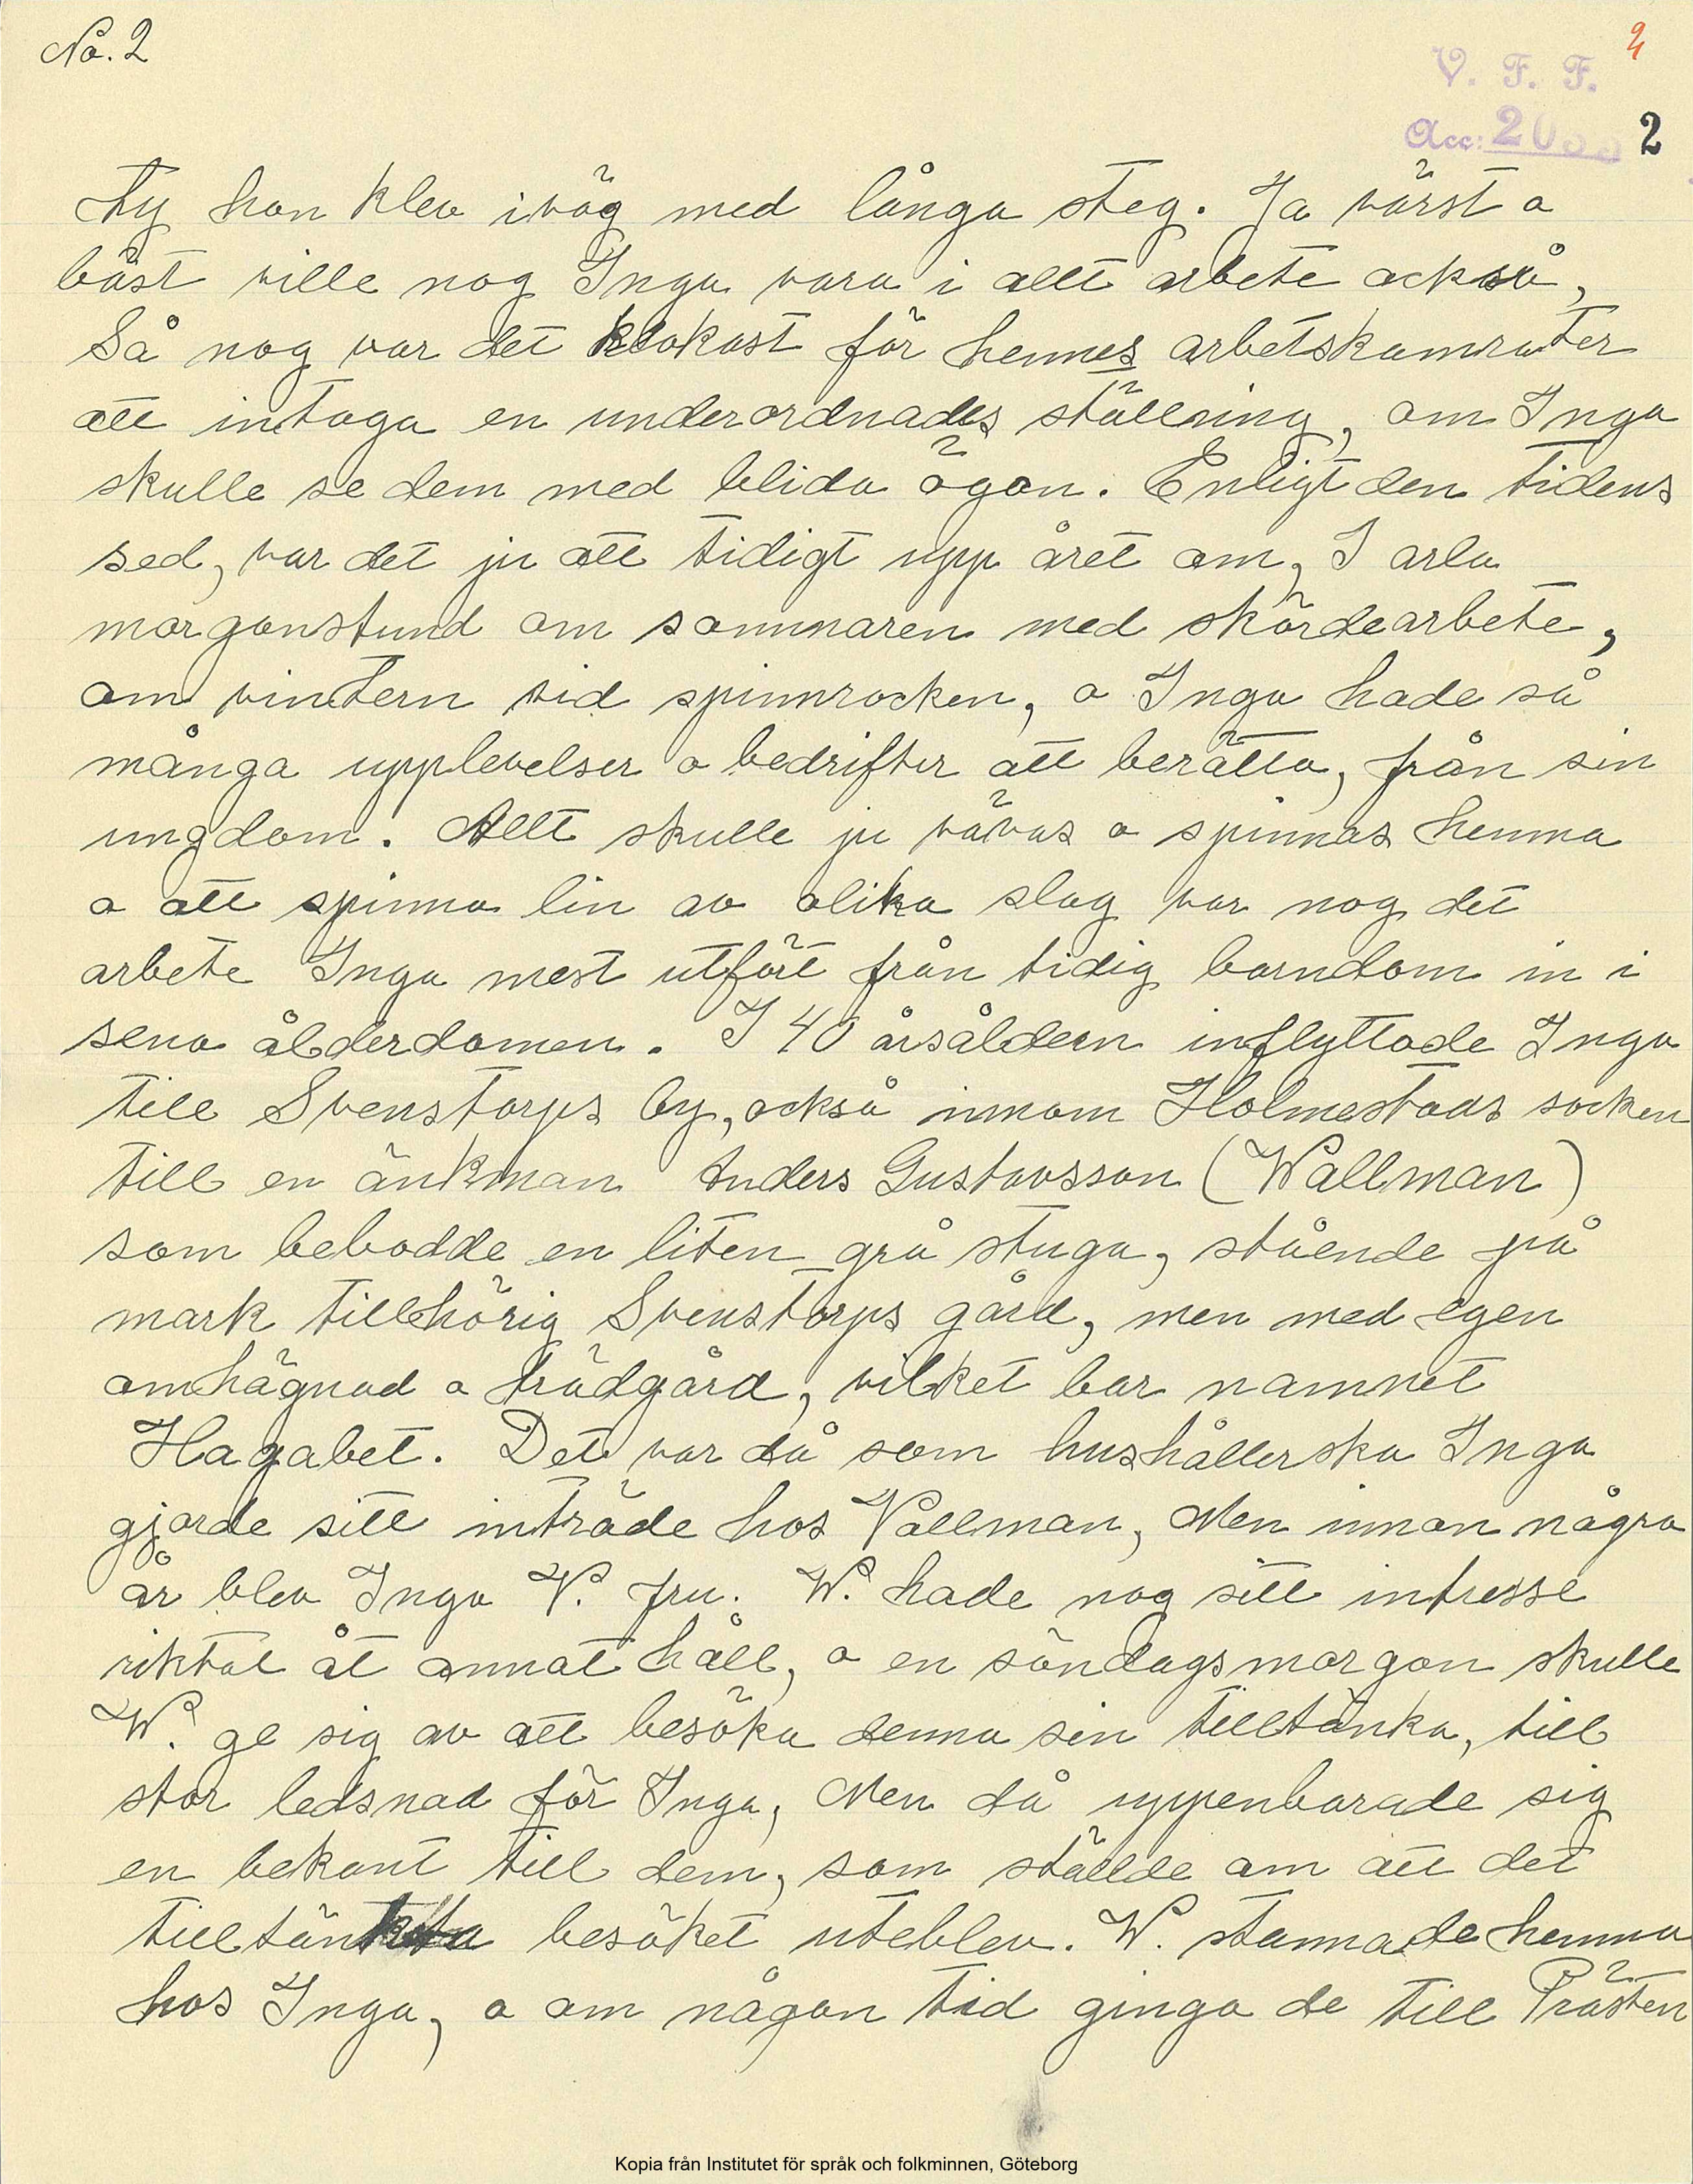 No. 2
2
V. F. F.
Acc: 20 2
Ty hon klev iväg med långa steg. Ja värst a
bäst ville nog Inga vara i allt arbete också,
Så nog var det klokast för hennes arbetskamrater
att intaga en underordnades ställning, om Inga
skulle se dem med blida ögon. Enligt den tidens
sed, var det ju att tidigt upp året om, I arla
morgonstund om sommaren med skördearbete,
om vintern vid spinnrocken, a Inga hade så
många upplevelser a bedrifter att berätta, från sin
ungdom. Allt skulle ju vävas a spinnas hemma
a att spinna lin av olika slag var nog det
arbete Inga mest utfört från tidig barndom in i
sena ålderdomen. I 40 årsåldern inflyttade Inga
till Svenstorps by, också innom Holmestads socken
till en änkman Anders Gustavsson (Wallman)
som bebodde en liten grå stuga, stående på
mark tillhörig Svenstorps gård, men med egen
omhägnad a trädgård, vilket bar namnet
Hagabet. Det var då som hushållerska Inga
gjorde sitt inträde hos Vallman, Men innan några
år blev Inga V. fru. W. hade nog sitt intresse
riktat åt annat håll, a en söndagsmorgon skulle
W. ge sig av att besöka denna sin tilltänka, till
stor ledsnad för Inga, Men då uppenbarade sig
en bekant till dem, som ställde om att det
tilltänkta besöket uteblev. W. stannade hemma
hos Inga, a om någon tid gingo de till Prästen
Kopia från Institutet för språk och folkminnen, Göteborg